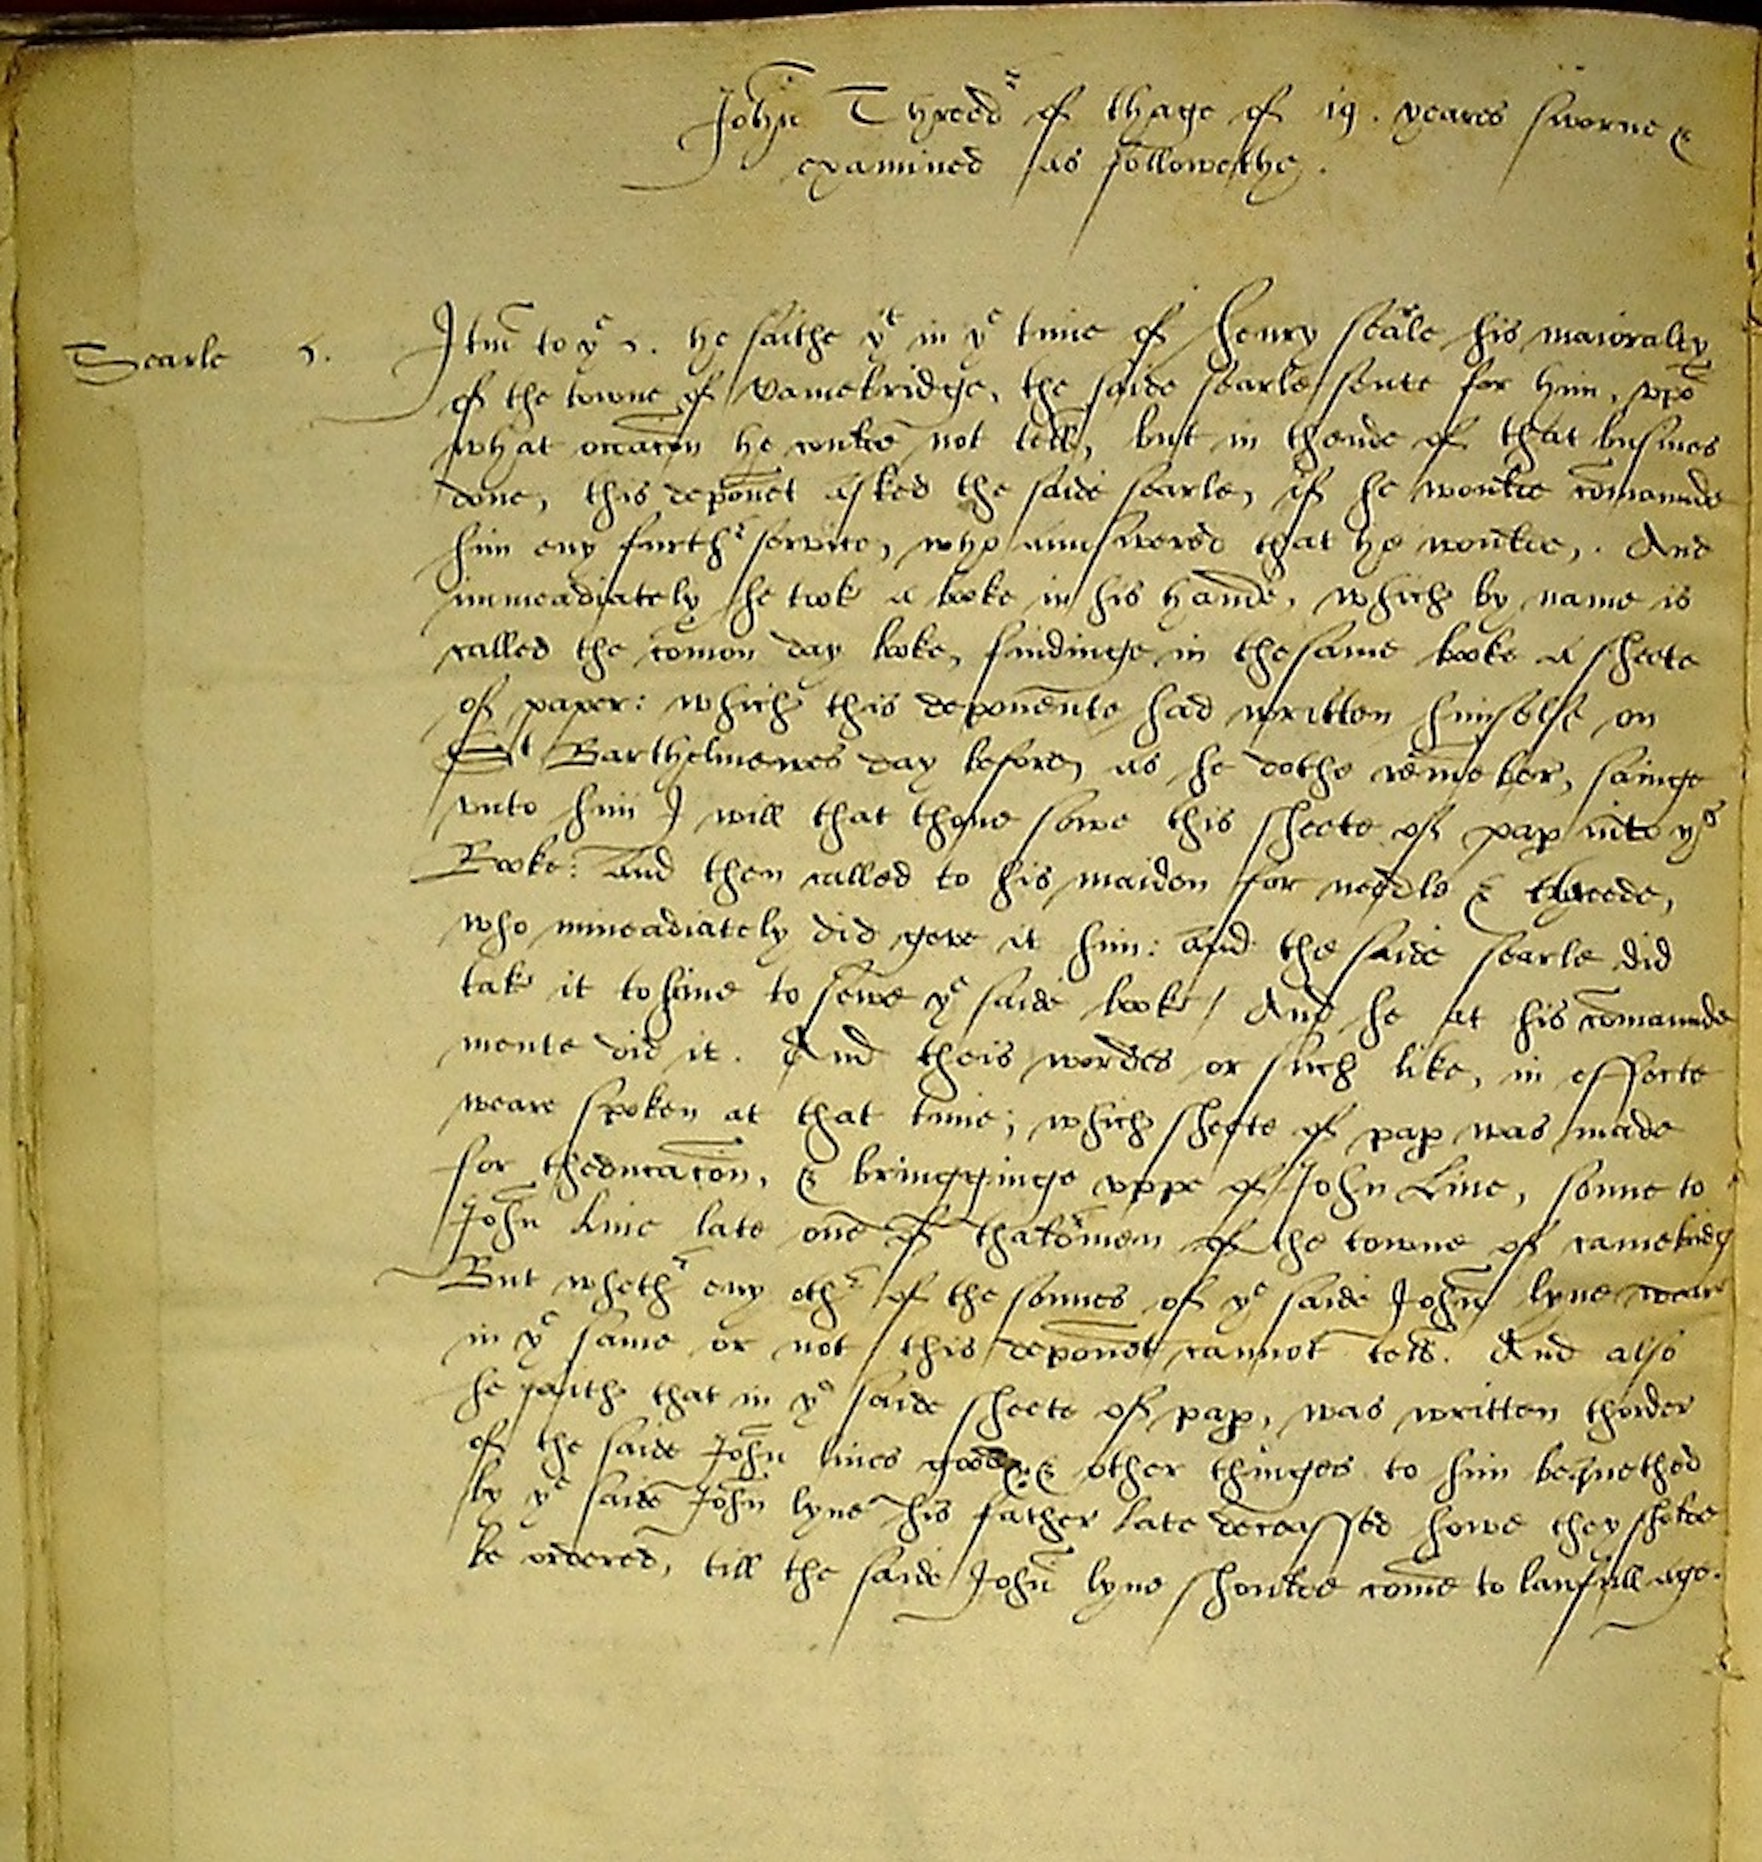 John Threder of thage of 19. yeares sworne &
examined as followethe.
Searle 5. Itm to ye 5. he saithe yt in ye time of Henry serle his maioralty
of the towne of Camebridge, the saide searle sente for him, vpō
what occacōn he coulde not tell, but in thende of that busines
done, this deponēt asked the saide searle, if he woulde cōmaunde
him eny furthr service, who aunswered that he woulde,. And
immeadiately he took a booke in his hande, which by name is
called the comon day booke, findinge in thesame booke a sheete
of paper: which this deponente had written himselfe on
St Barthelmewes day before, as he dothe remēber, sainge
vnto him I will that thoue sowe this sheete of pap into ys
Booke: And then called to his maiden for nedle & threede,
who immeadiately did geve it him: And the saide searle did
take it to hime to sewe ye saide booke / And he at his cōmaunde
mente did it. And theis wordes or such like, in effecte
weare spoken at that time; which sheete of pap was made
for theducacōn, & bringginge vppe of John Line, sonne to
John line late one of thaldrmen of the towne of camebridg
But whethr eny othr of the sonnes of ye saide John lyne weare
in ye same or not this deponēt cannot tell. And also
he saith that in ye saide sheete of pap, was written thorder
of the saide John lines goodes & other thinges to him bequethed
by ye saide John lyne his father late deceassed howe they sholde
be ordered, till the saide John lyne shoulde come to lawfull age.